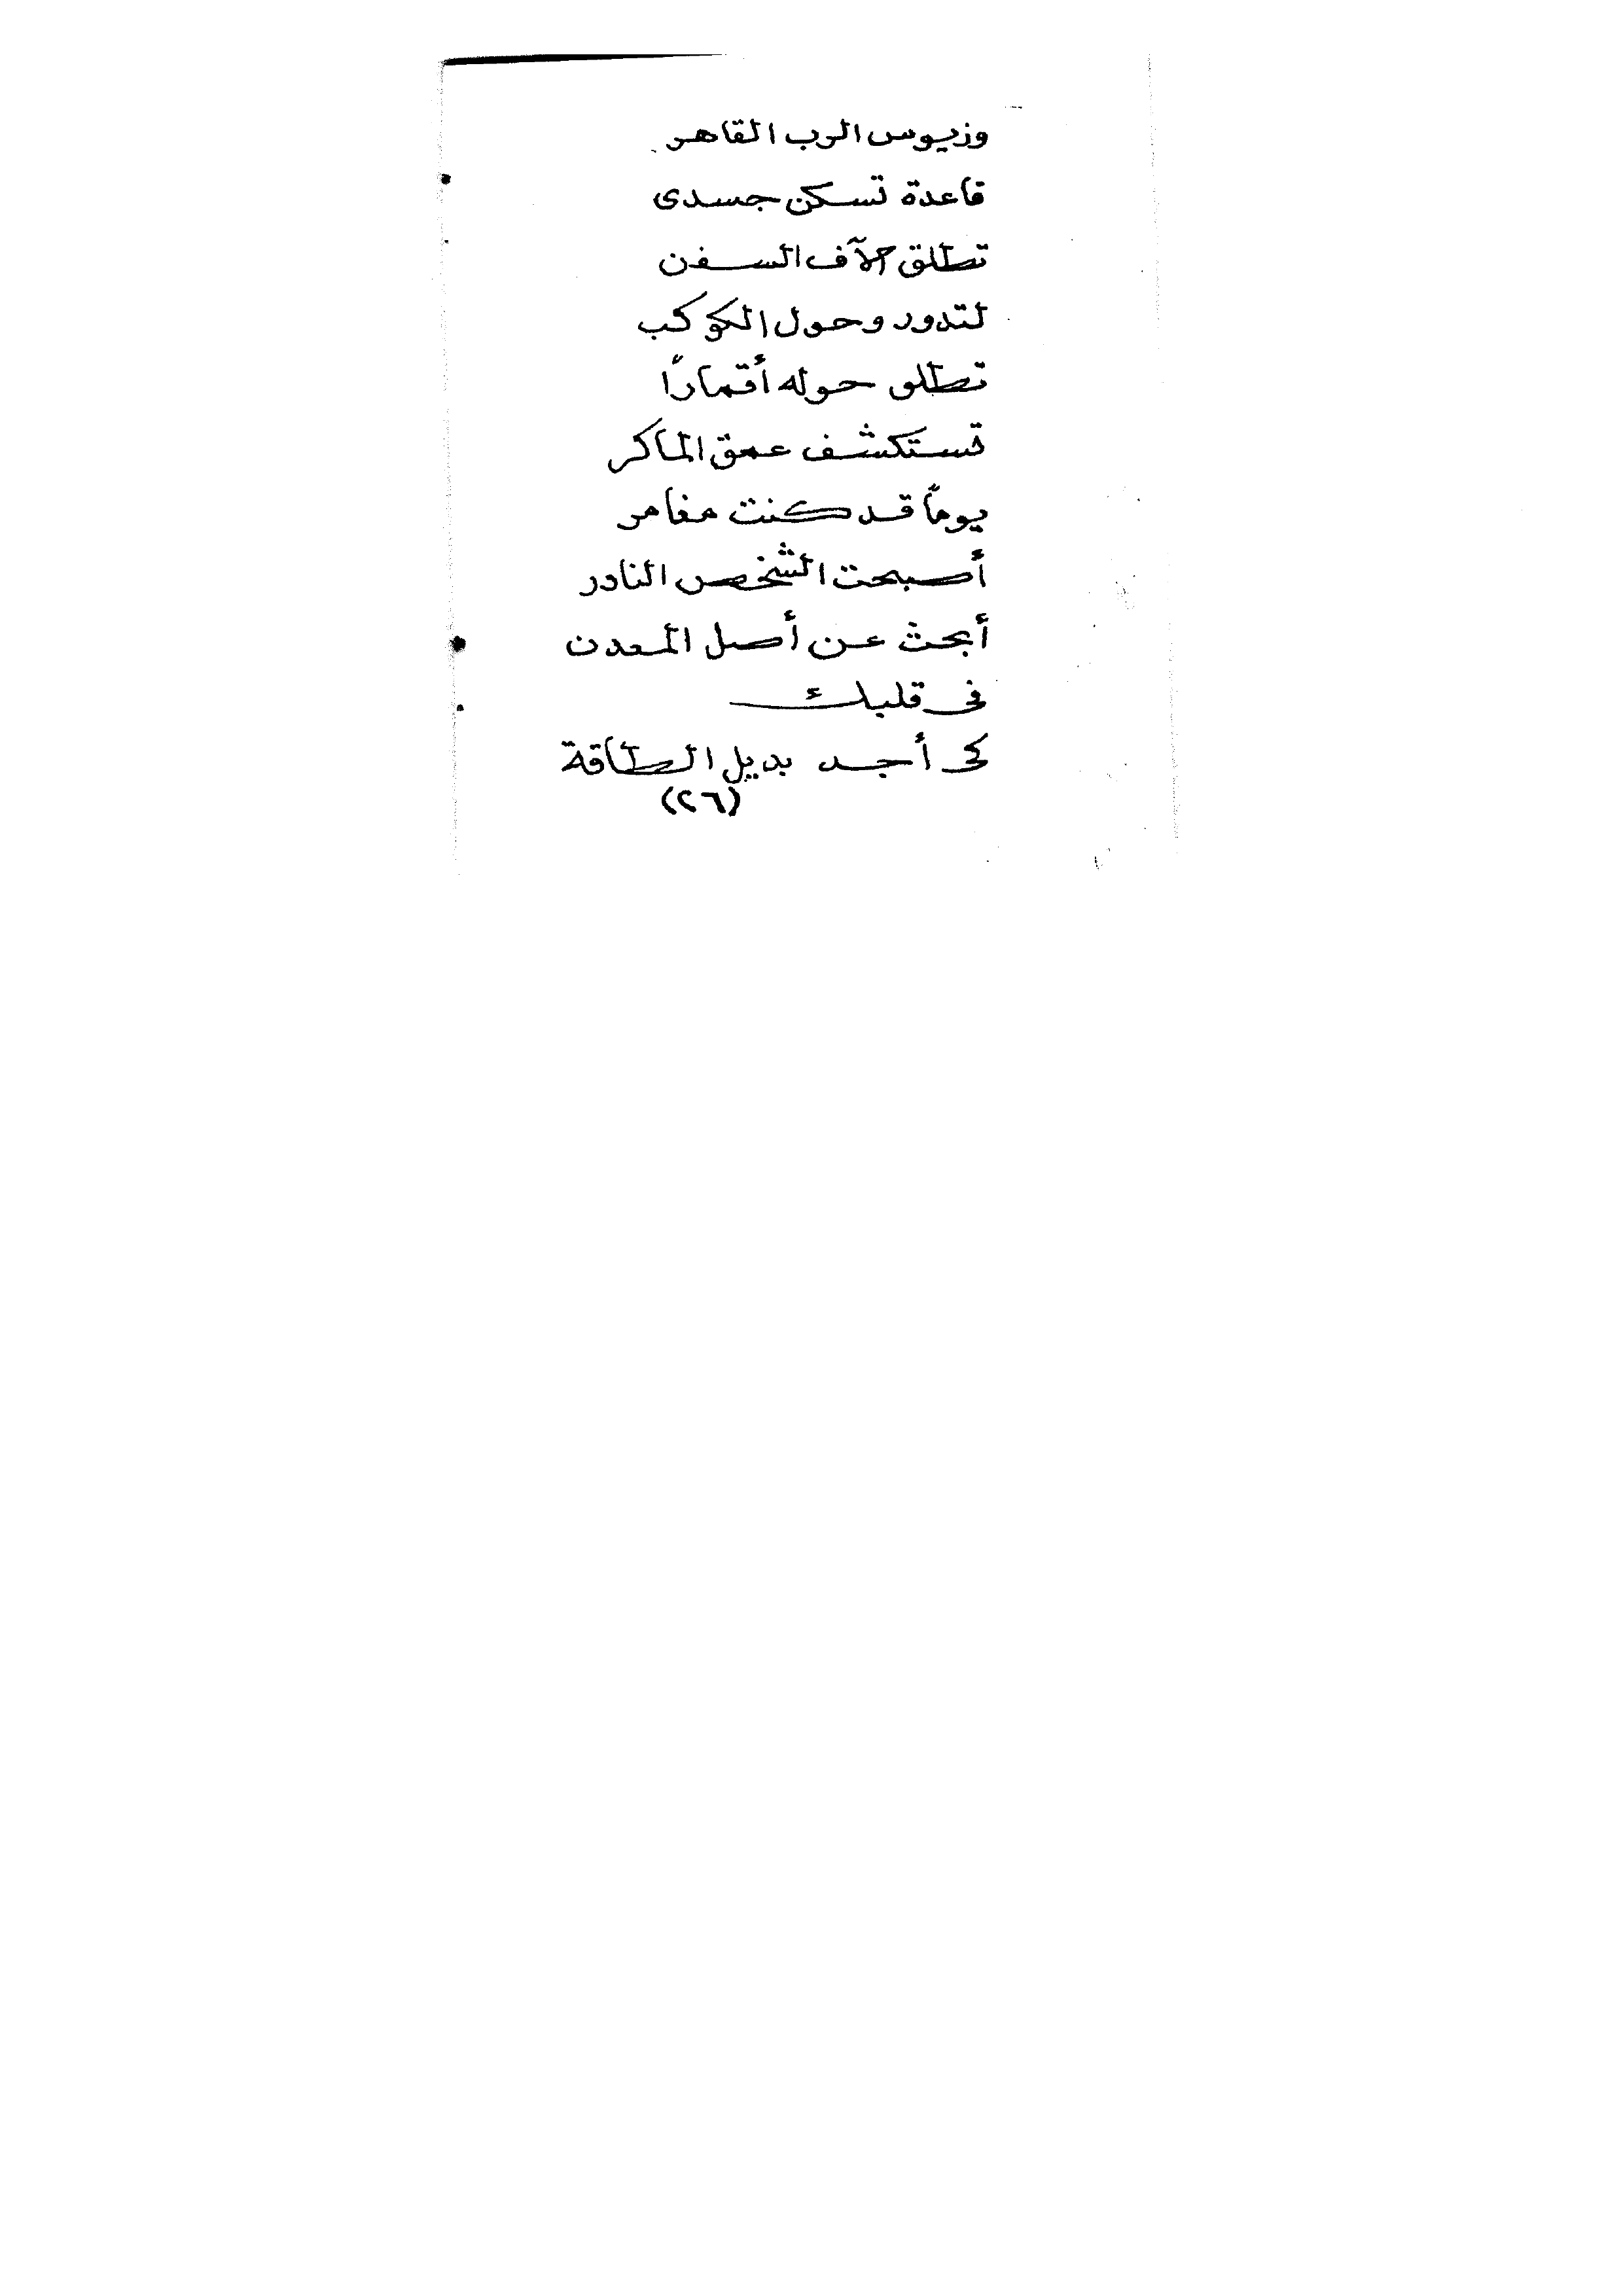 وزيوس الرب القاهر
قاعدة تسكن جسدى
تطلق آلاف السفن
لتدور وحول الكوكب
تطلق حوله أقمارًا
تستكشف عمق الماكر
يومًا قد كنت مغامر
أصبحت الشخص النادر
أبحث عن أصل المعدن
فى قلبك
كى أجد بديل الطاقة
(٢٦)